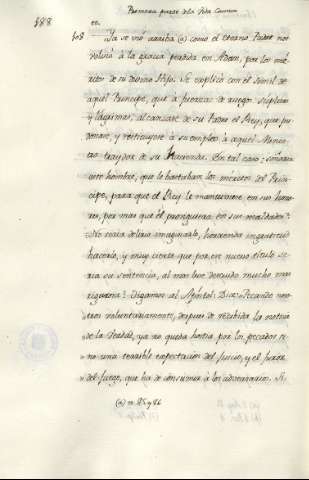 188
Primera parte de la Vida Comun
ce.
308 Ya se vió arriba (a) como el Eterno Padre nos
volvió à la gracia perdida en Adam, por los mé-
ritos de su divino Hijo. Se explicó con el simil de
aquel Principe, que a fuerza de ruegos, suplicas
y lágrimas, alcanzase de su Padre el Rey, que per-
donase, y restituyese à su empleo à aquel Minis-
tro traydor de su Hacienda. En tal caso: soñaria
este hombre, que le bastaban los méritos del Prin-
cipe, para que el Rey le mantuviese en sus hono-
res, por mas que el prosiguiera en sus maldades?
No seria delirio imaginarlo, horrenda ingratitud
hacerlo, y muy cierta que por este nuevo titulo se-
ria su sentencia, al mas leve descuido mucho mas
rigurosa? Digamos al Apóstol: Dice: Pecando nos-
otros voluntariamente, despues de recibida la noticia
de la Verdad, ya no queda hostia por los pecados si-
no una terrible expectacion del Juicio, y el furor
del fuego, que ha de consumir à los adversarios. Si,
(a) n. 85 y 86